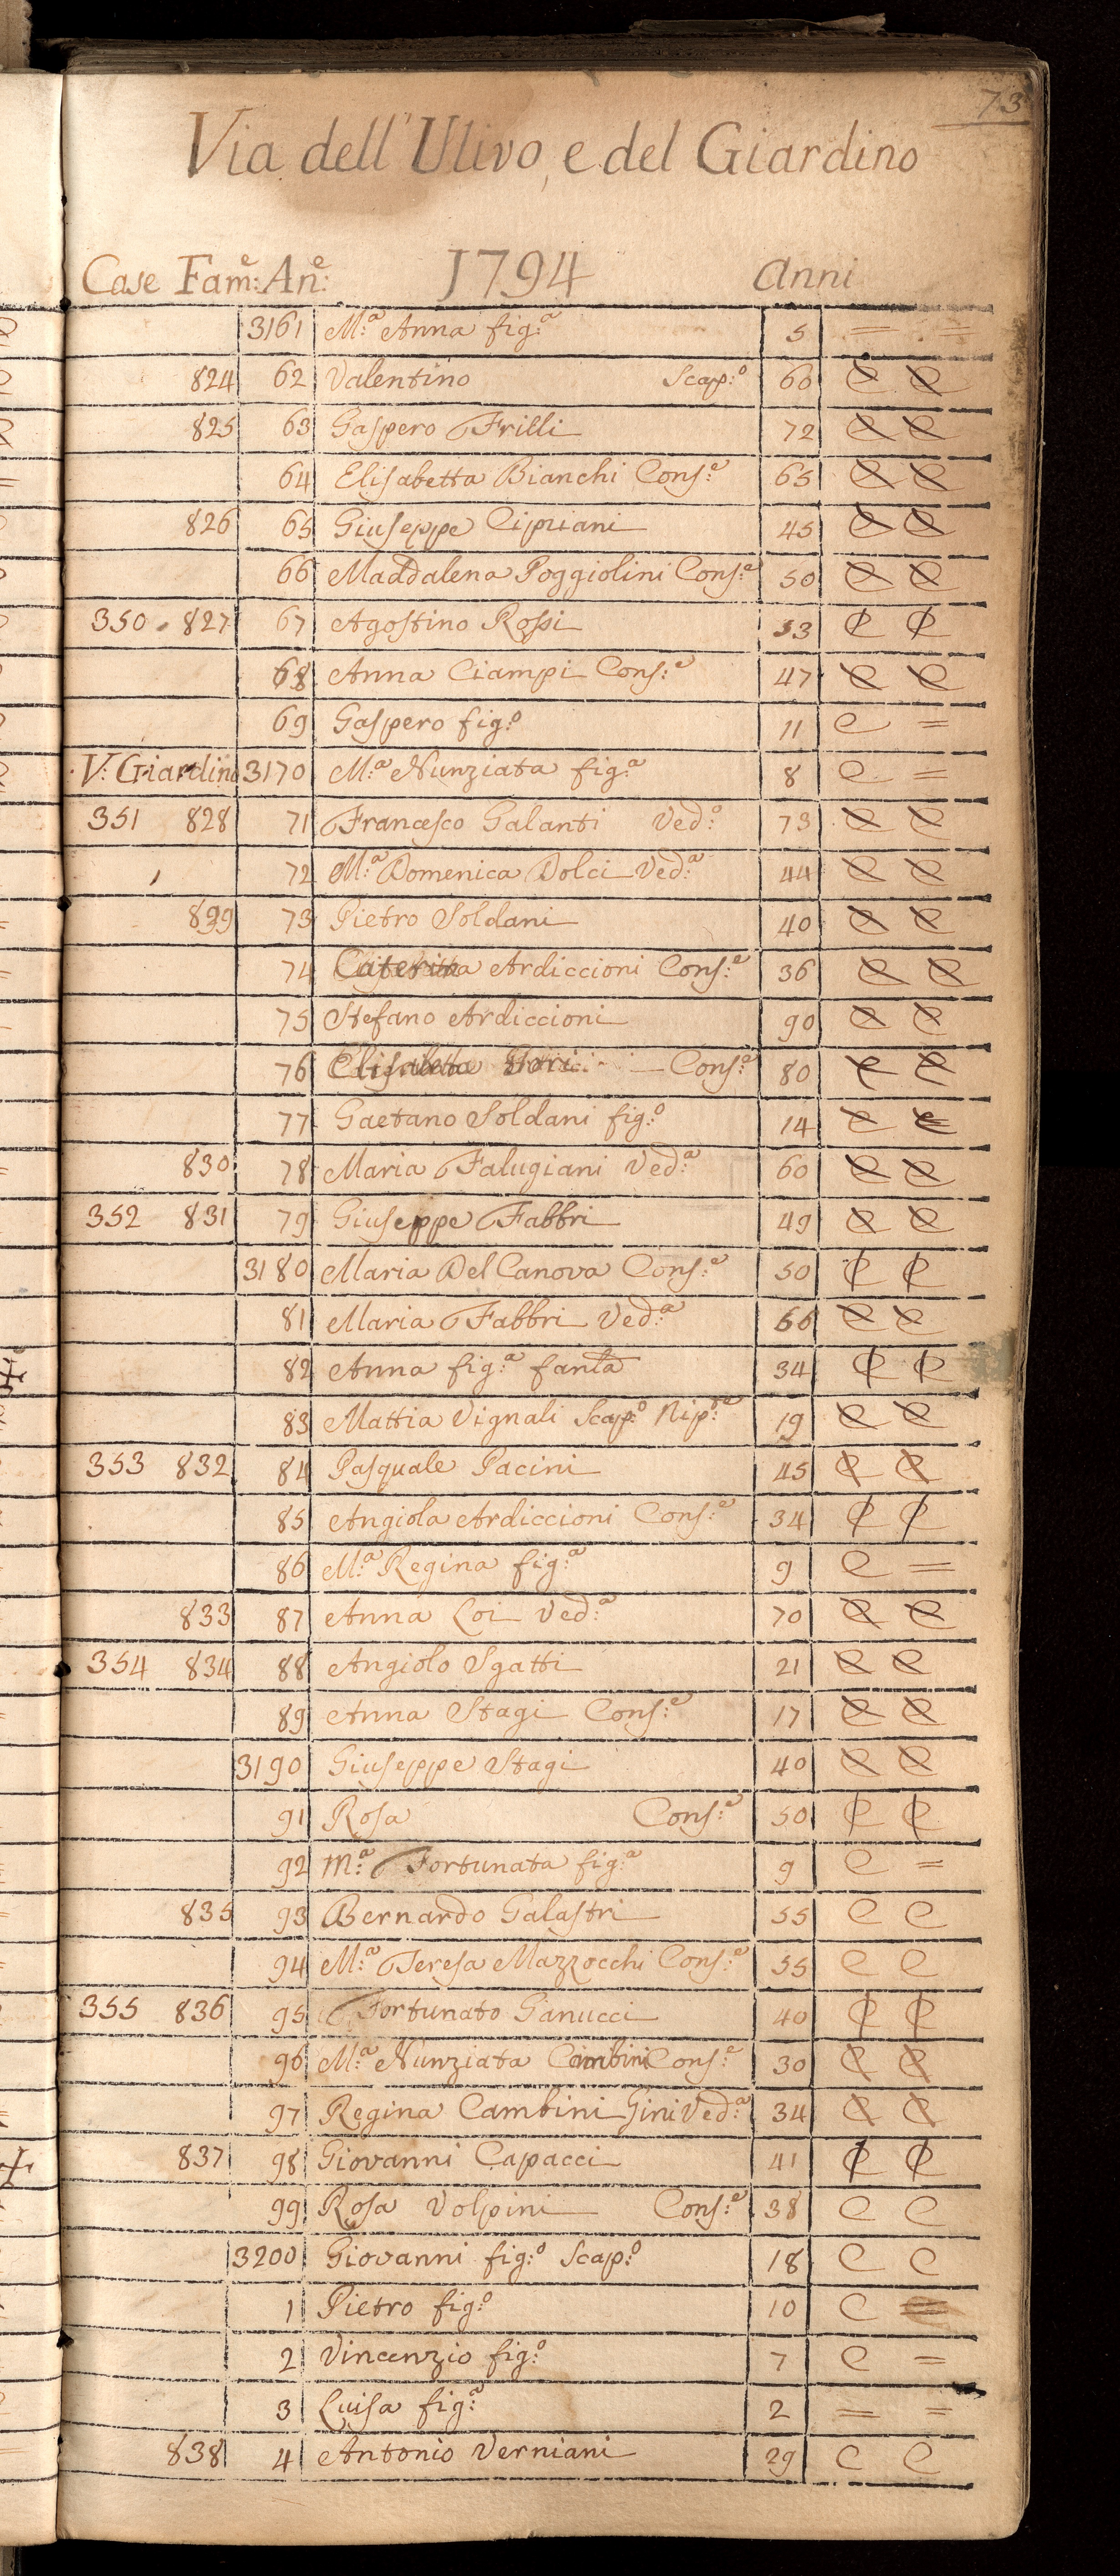 73
Via dell'Ulivo, e del Giardino
Case Fam:e An:e 1794 Anni
3161 M:a Anna fig:a 5 = =
824 62 Valentino Scap:o 60 C C
825 63 Gaspero Frilli 72 C C
64 Elisabetta Bianchi Cons:e 65 C C
826 65 Giuseppe Cipriani 45 C C
66 Maddalena Poggiolini Cons:e 50 C C
350 827 67 Agostino Rossi 53 C C
68 Anna Ciampi Cons:e 47 C C
69 Gaspero fig:o 11 C =
V: Giardino 3170 M:a Nunziata fig:a 8 C =
351 828 71 Francesco Galanti Ved:o 73 C C
72 M:a Domenica Dolci Ved:a 44 C C
829 73 Pietro Soldani 40 C C
74 Caterina Ardiccioni Cons:e 36 C C
75 Stefano Ardiccioni 90 C C
76 Elisabetta Cons:e 80 C C
77 Gaetano Soldani fig:o 14 C C
830 78 Maria Falugiani Ved:a 60 C C
352 831 79 Giuseppe Fabbri 49 C C
3180 Maria Del Canova Cons:e 50 C C
81 Maria Fabbri Ved:a 66 C C
82 Anna fig:a fanla 34 C C
83 Mattia Vignali Scap:o Nip:e 19 C C
353 832 84 Pasquale Pacini 45 C C
85 Angiola Ardiccioni Cons:e 34 C C
86 M:a Regina fig:a 9 C =
833 87 Anna Loi Ved:a 70 C C
354 834 88 Angiolo Sgatti 21 C C
89 Anna Stagi Cons:e 17 C C
3190 Giuseppe Stagi 40 C C
91 Rosa Cons:e 50 C C
92 M:a Fortunata fig:a 9 C =
835 93 Bernardo Galastri 55 C C
94 M:a Teresa Mazzocchi Cons:e 55 C C
355 836 95 Fortunato Ganucci 40 C C
96 M:a Nunziata Cambini Cons:e 30 C C
97 Regina Cambini Gini Ved:a 34 C C
837 98 Giovanni Capacci 41 C C
99 Rosa Volpini Cons:e 38 C C
3200 Giovanni fig:o Scap:o 18 C C
1 Pietro fig:o 10 C =
2 Vincenzio fig:o 7 C =
3 Luisa fig:a 2 = =
838 4 Antonio Verniani 29 C C